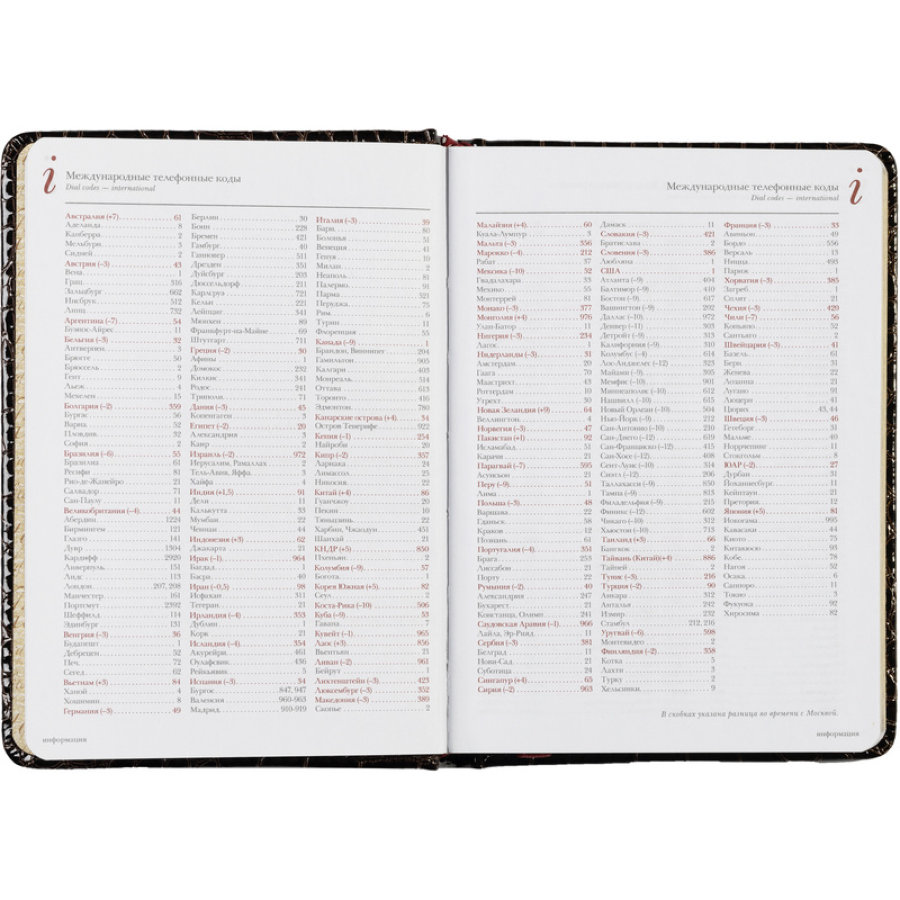 i
Международные телефонные коды
Dial codes — international
Австралия (+7) 61
Аделаида 8
Канберра 2
Мельбурн 3
Сидней 2
Австрия (–3) 43
Вена 1
Грац 316
Зальцбург 662
Инсбрук 512
Линц 732
Аргентина (–7) 54
Буэнос-Айрес 11
Бельгия (–3) 32
Антверпен 3
Брюгге 50
Брюссель 2
Гент 9
Льеж 4
Мехелен 15
Болгария (–2) 359
Бургас 56
Варна 52
Пловдив 32
София 2
Бразилия (–6) 55
Бразилиа 61
Ресифи 81
Рио-де-Жанейро 21
Салвадор 71
Сан-Паулу 11
Великобритания (–4) 44
Абердин 1224
Бирмингем 121
Глазго 141
Дувр 1304
Кардифф 2920
Ливерпуль 151
Лидс 113
Лондон 207, 208
Манчестер 161
Портсмут 2392
Шеффилд 114
Эдинбург 131
Венгрия (–3) 36
Будапешт 1
Дебрецен 52
Печ 72
Сегед 62
Вьетнам (+3) 84
Ханой 4
Хошимин 8
Германия (–3) 49
Берлин 30
Бонн 228
Бремен 421
Гамбург 40
Ганновер 511
Дрезден 351
Дуйсбург 203
Дюссельдорф 211
Карлсруэ 721
Кельн 221
Лейпциг 341
Мюнхен 89
Франкфурт-на-Майне 69
Штутгарт 711
Греция (–2) 30
Афины 1
Домокос 232
Килкис 341
Родос 241
Триполи 71
Дания (–3) 45
Копенгаген 3
Египет (–2) 20
Александрия 3
Каир 2
Израиль (–2) 972
Иерусалим, Рамаллах 2
Тель-Авив, Яффа 3
Хайфа 4
Индия (+1,5) 91
Дели 11
Калькутта 33
Мумбаи 22
Ченнаи 44
Индонезия (+3) 62
Джакарта 21
Ирак (–1) 964
Багдад 1
Басра 40
Иран (–0,5) 98
Исфахан 311
Тегеран 21
Ирландия (–4) 353
Дублин 1
Корк 21
Исландия (–4) 354
Акурейри 461
Оулафсвик 436
Рейкьявик 5
Испания (–3) 34
Бургос 847, 947
Валенсия 960-963
Мадрид 910-919
Италия (–3) 39
Бари 80
Болонья 51
Венеция 41
Генуя 10
Милан 2
Неаполь 81
Палермо 91
Парма 521
Перуджа 75
Рим 6
Турин 11
Флоренция 55
Канада (–9) 1
Брандон, Виннипег 204
Гамильтон 905
Калгари 403
Монреаль 514
Оттава 613
Торонто 416
Эдмонтон 780
Канарские острова (+4) 34
Остров Тенерифе 922
Кения (–1) 254
Найроби 20
Кипр (–2) 357
Ларнака 24
Лимассол 25
Никосия 22
Китай (+4) 86
Гуанчжоу 20
Пекин 10
Тяньцзинь 22
Харбин, Чжаодун 451
Шанхай 21
КНДР (+5) 850
Пхеньян 2
Колумбия (–9) 57
Богота 1
Корея Южная (+5) 82
Сеул 2
Коста-Рика (–10) 506
Куба (–9) 53
Гавана 7
Кувейт (–1) 965
Лаос (+3) 856
Вьентьян 21
Ливан (–2) 961
Бейрут 1
Лихтенштейн (–3) 423
Люксембург (–3) 352
Македония (–3) 389
Скопье 2
информация
Международные телефонные коды
Dial codes — international
i
Малайзия (+4) 60
Куала-Лумпур 3
Мальта (–3) 356
Марокко (–4) 212
Рабат 37
Мексика (–10) 52
Гвадалахара 33
Мехико 55
Монтеррей 81
Монако (–3) 377
Монголия (+4) 976
Улан-Батор 11
Нигерия (–3) 234
Лагос 1
Нидерланды (–3) 31
Амстердам 20
Гаага 70
Маастрихт 43
Роттердам 10
Утрехт 30
Новая Зеландия (+9) 64
Веллингтон 4
Норвегия (–3) 47
Пакистан (+1) 92
Исламабад 51
Карачи 21
Парагвай (–7) 595
Асунсьон 21
Перу (–9) 51
Лима 1
Польша (–3) 48
Варшава 22
Гданьск 58
Краков 12
Познань 61
Португалия (–4) 351
Брага 253
Лиссабон 21
Порту 22
Румыния (–2) 40
Александрия 247
Бухарест 21
Констанца, Олимп 241
Саудовская Аравия (–1) 966
Лайла, Эр-Рияд 11
Сербия (–3) 381
Белград 11
Нови-Сад 21
Суботица 24
Сингапур (+4) 65
Сирия (–2) 963
Дамаск 11
Словакия (–3) 421
Братислава 2
Словения (–3) 386
Любляна 1
США 1
Атланта (–9) 404
Балтимор (–9) 410
Бостон (–9) 617
Вашингтон (–9) 202
Даллас (–10) 972
Денвер (–11) 303
Детройт (–9) 313
Калифорния (–9) 310
Колумбус (–4) 614
Лос-Анджелес (–12) 323
Майами (–9) 305
Мемфис (–10) 901
Миннеаполис (–10) 612
Нашвилл (–10) 615
Новый Орлеан (–10) 504
Нью-Йорк (–9) 212
Сан-Антонио (–10) 210
Сан-Диего (–12) 619
Сан-Франциско (–12) 415
Сан-Хосе (–12) 408
Сент-Луис (–10) 314
Сиэтл (–12) 206
Таллахасси (–9) 850
Тампа (–9) 813
Филадельфия (–9) 215
Финикс (–12) 602
Чикаго (–10) 312
Хьюстон (–10) 713
Таиланд (+3) 66
Бангкок 2
Тайвань (Китай)(+4) 886
Тайпей 2
Тунис (–3) 216
Турция (–2) 90
Анкара 312
Анталья 242
Измир 232
Стамбул 212, 216
Уругвай (–6) 598
Монтевидео 2
Финляндия (–2) 358
Котка 5
Лахти 3
Турку 2
Хельсинки 9
Франция (–3) 33
Авиньон 49
Бордо 556
Версаль 13
Ницца 493
Париж 1
Хорватия (–3) 385
Загреб 1
Сплит 21
Чехия (–3) 420
Чили (–7) 56
Копьяпо 52
Сантьяго 2
Швейцария (–3) 41
Базель 61
Берн 31
Женева 22
Лозанна 21
Лугано 91
Люцерн 41
Цюрих 43, 44
Швеция (–3) 46
Гетеборг 31
Мальме 40
Норрчепинг 11
Стокгольм 8
ЮАР (–2) 27
Дурбан 31
Йоханнесбург 11
Кейптаун 21
Претория 12
Япония (+5) 81
Иокогама 995
Кавасаки 44
Киото 75
Китакюсю 93
Кобе 78
Нагоя 52
Осака 6
Саппоро 11
Токио 3
Фукуока 92
Хиросима 82
В скобках указана разница во времени с Москвой.
информация